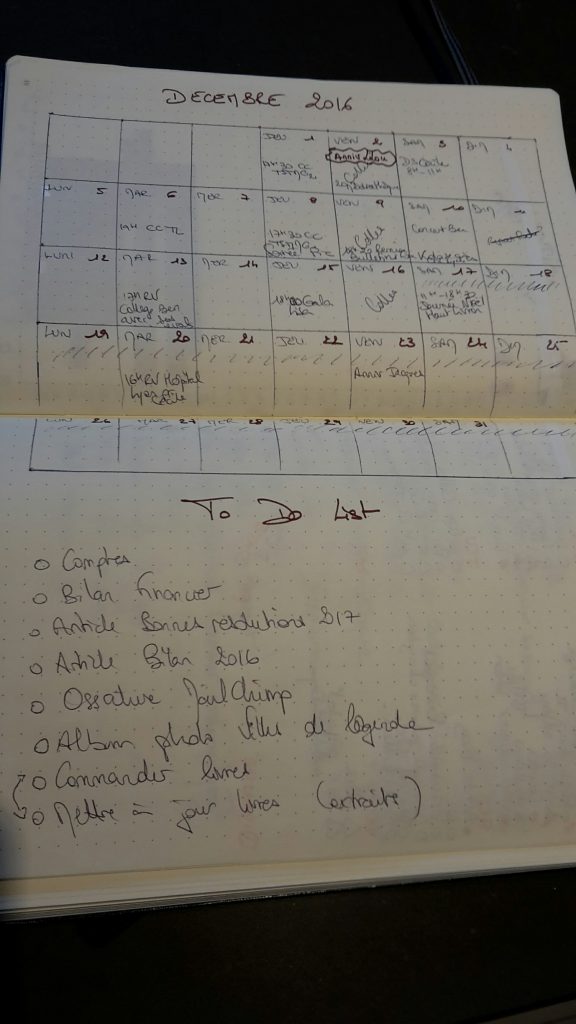 DECEMBRE 2016
JEU 1
VEN 2
SAM 3
DIM 4
17H30 CC
Anniv
Colles
8H-11H
LUN 5
MAR 6
MER 7
JEU 8
VEN 9
SAM 10
DIM
19H CCTL
17H30 CC
Colles
Concert Ben
LUNI 12
MAR 13
MER 14
JEU 15
VEN 16
SAM 17
DIM 18
17H RV
College Ben
avec
18H30 Gala
Lisa
Colles
11H-18H
Noël
LUN 19
MAR 20
MER 21
JEU 22
VEN 23
SAM 24
DIM 25
16H RV Hopital
Lyon
Anniv Jacques
LUN 26
MAR 27
MER 28
JEU 29
VEN 30
SAM 31
To Do List
Comptes
Bilan financier
Article Bonnes resolutions 2017
Article Bilan 2016
Ossature MailChimp
Album photo Villes de légende
Commander livres
Mettre à jour livres (extraits)